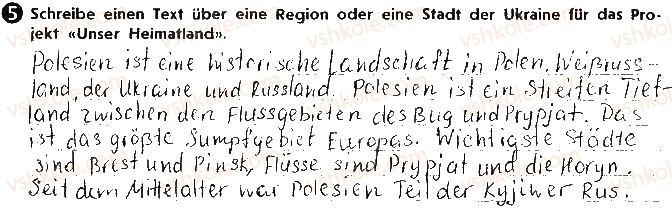 5 Schreibe einen Text über eine Region oder eine Stadt der Ukraine für das Pro-
jekt «Unser Heimatland».
Polesien ist eine historische Landschaft in Polen, Weißruss-
land, der Ukraine und Russland. Polesien ist ein Streifen Tief-
land zwischen den Flussgebieten des Bug und Prypjat. Das
ist das größte Sumpfgebiet Europas. Wichtigste Städte
sind Brest und Pinsk, Flüsse sind Prypjat und die Horyn.
Seit dem Mittelalter war Polesien Teil der Kyjiwer Rus.